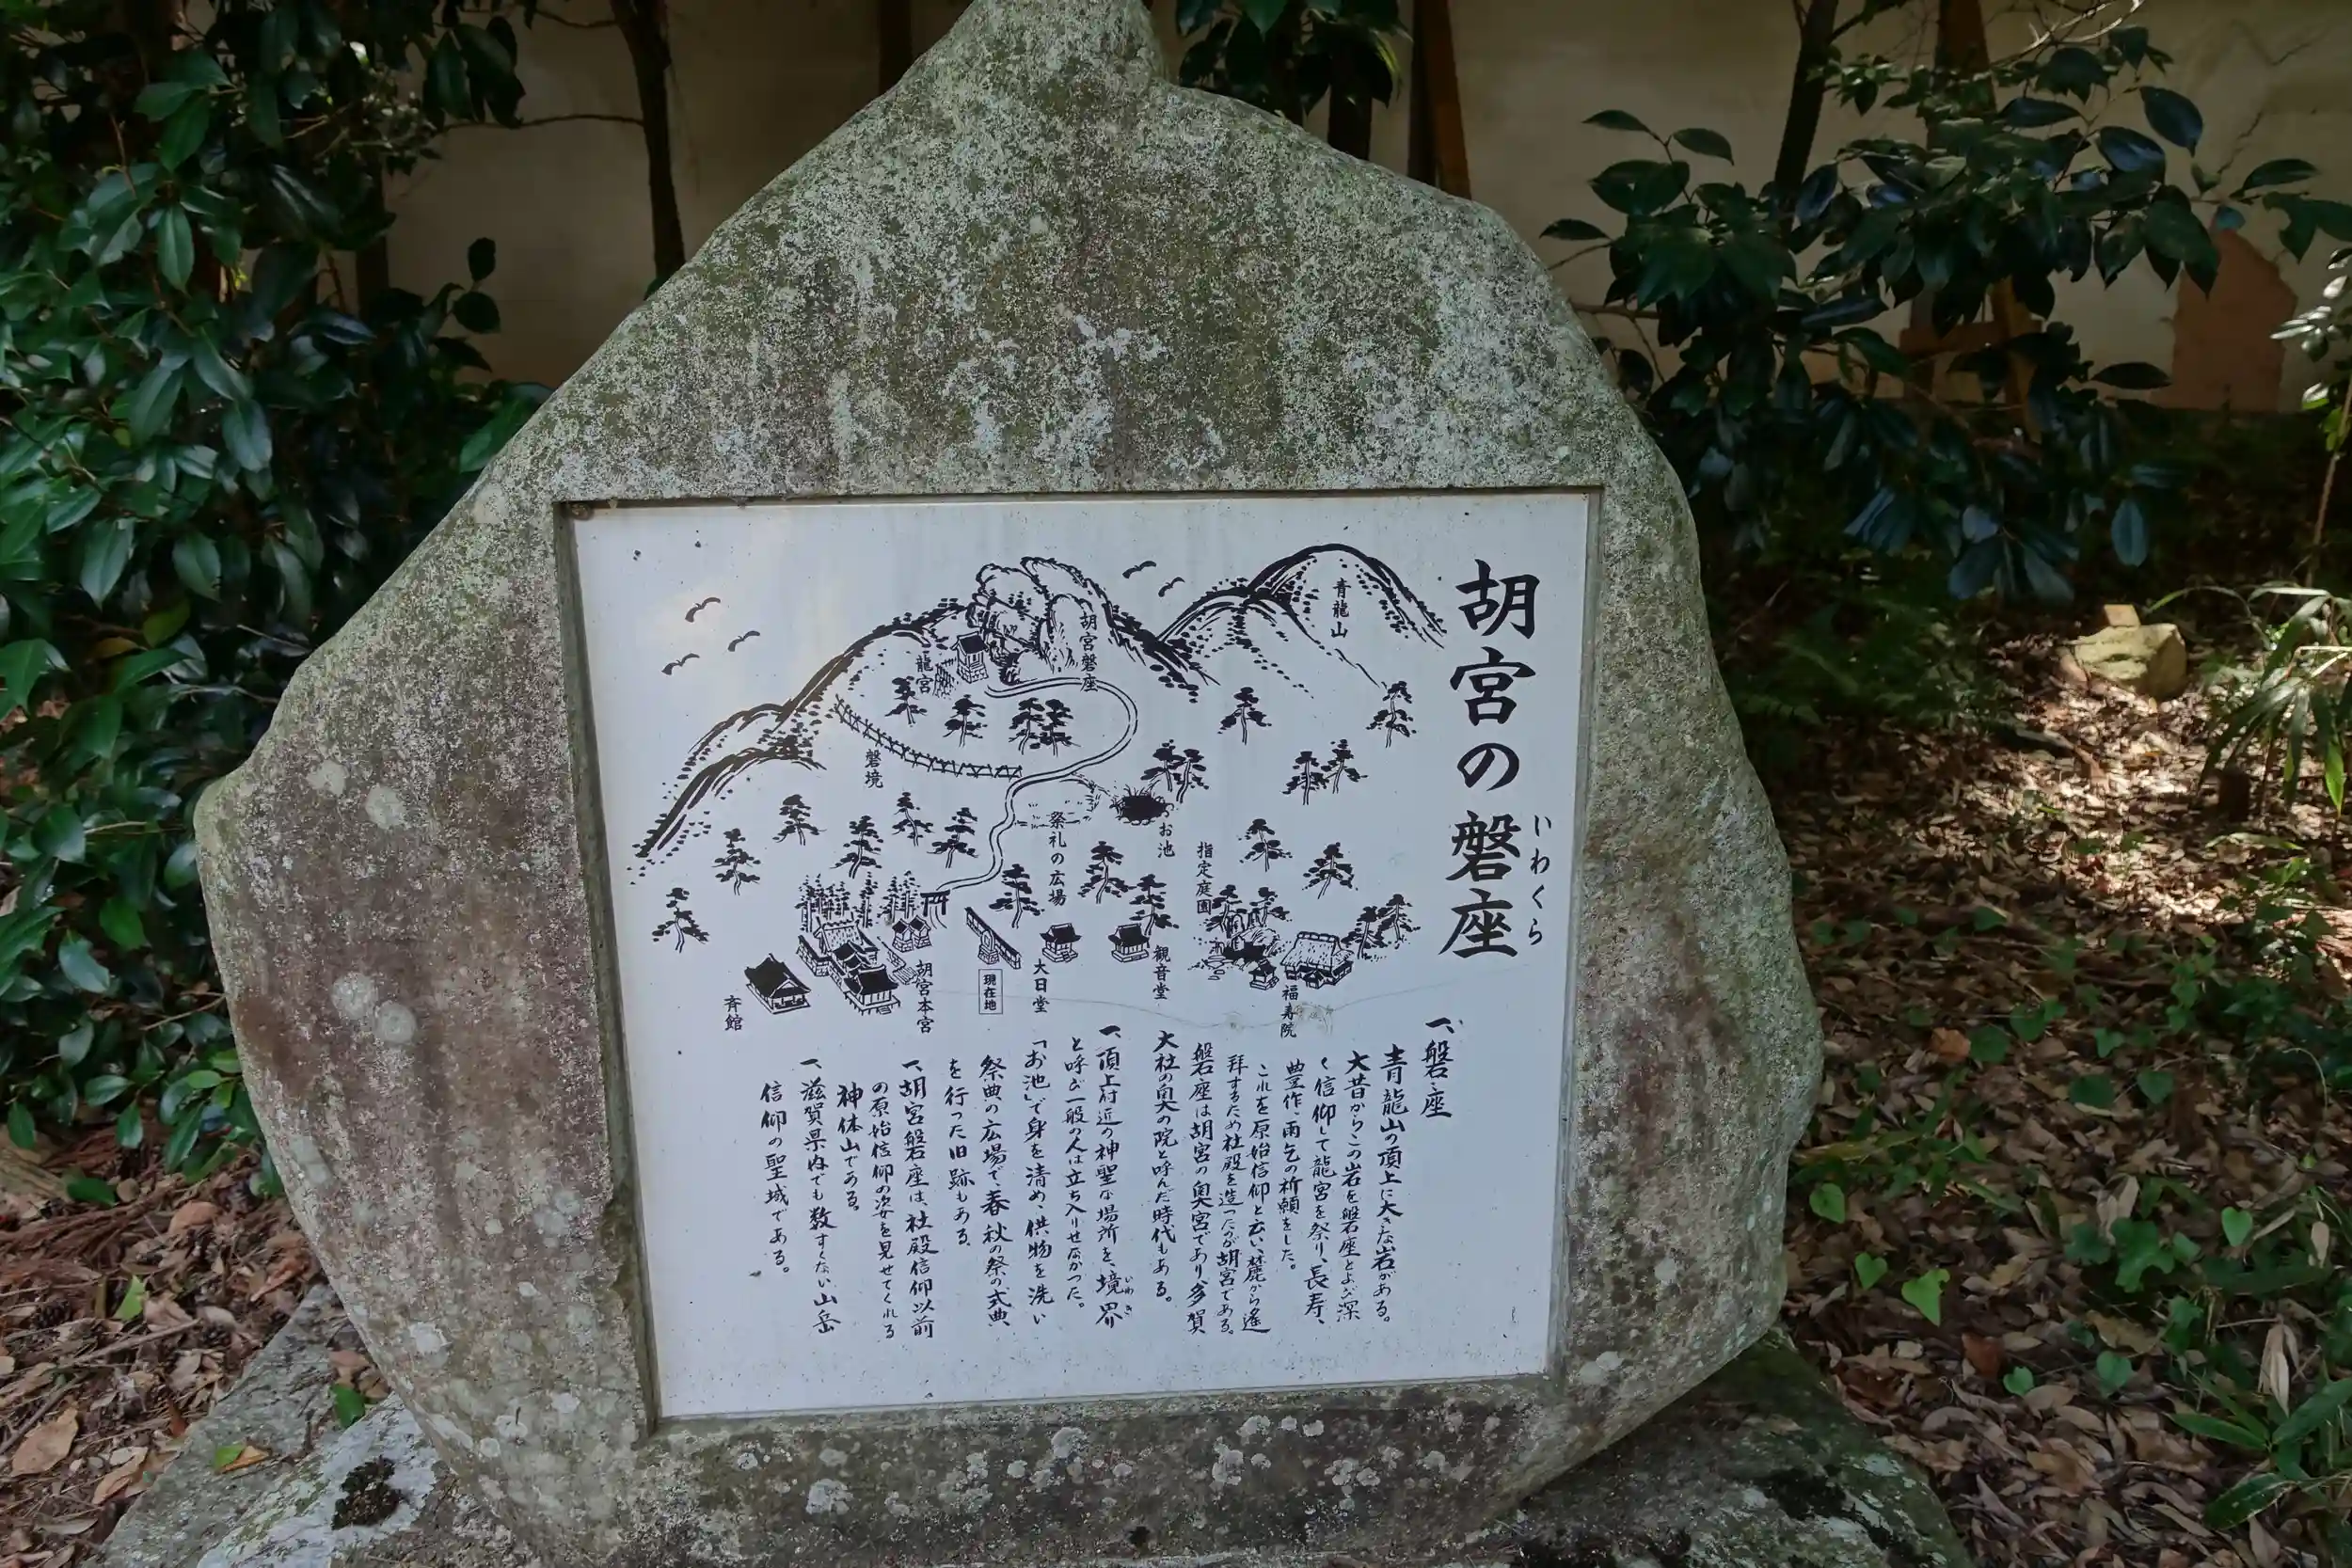 胡宮の磐座
いわくら
青龍山
胡宮磐座
龍宮
磐境
お池
祭礼の広場
指定庭園
観音堂
大日堂
現在地
胡宮本宮
斉館
福寿院
一、磐座
青龍山の頂上に大きな岩がある。
大昔からこの岩を磐座とよび深
く信仰して龍宮を祭り、長寿、
豊作、雨乞の祈願をした。
これを原始信仰と云い、麓から遙
拝するため社殿を造ったのが胡宮である。
磐座は胡宮の奥宮であり多賀
大社の奥の院と呼んだ時代もある。
一、頂上付近の神聖な場所を、境界
いわき
と呼び一般の人は立ち入りせなかった。
「お池」で身を清め、供物を洗い
祭典の広場で、春秋の祭の式典
を行った旧跡もある。
一、胡宮磐座は、社殿信仰以前
の原始信仰の姿を見せてくれる
神体山である。
一、滋賀県内でも数すくない山岳
信仰の聖域である。